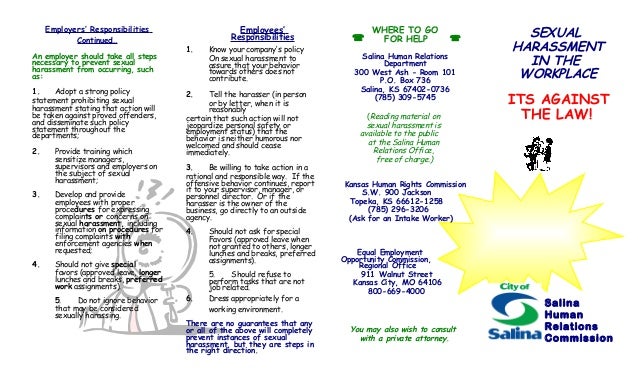 Employers' Responsibilities
Continued
An employer should take all steps
necessary to prevent sexual
harassment from occurring, such
as:
1. Adopt a strong policy
statement prohibiting sexual
harassment stating that action will
be taken against proved offenders,
and disseminate such policy
statement throughout the
departments;
2. Provide training which
sensitize managers,
supervisors and employers on
the subject of sexual
harassment;
3. Develop and provide
employees with proper
procedures for expressing
complaints or concerns on
sexual harassment, including
information on procedures for
filing complaints with
enforcement agencies when
requested;
4. Should not give special
favors (approved leave, longer
lunches and breaks, preferred
work assignments)
5. Do not ignore behavior
that may be considered
sexually harassing.
Employees'
Responsibilities
1. Know your company's policy
On sexual harassment to
assure that your behavior
towards others does not
contribute.
2. Tell the harasser (in person
or by letter, when it is
reasonably
certain that such action will not
jeopardize personal safety or
employment status) that the
behavior is neither humorous nor
welcomed and should cease
immediately.
3. Be willing to take action in a
rational and responsible way. If the
offensive behavior continues, report
it to your supervisor, manager, or
personnel director. Or if the
harasser is the owner of the
business, go directly to an outside
agency.
4. Should not ask for special
Favors (approved leave when
not granted to others, longer
lunches and breaks, preferred
assignments).
5. Should refuse to
perform tasks that are not
job related.
6. Dress appropriately for a
working environment.
There are no guarantees that any
or all of the above will completely
prevent instances of sexual
harassment, but they are steps in
the right direction.
☎ WHERE TO GO
FOR HELP ☎
Salina Human Relations
Department
300 West Ash - Room 101
P.O. Box 736
Salina, KS 67402-0736
(785) 309-5745
(Reading material on
sexual harassment is
available to the public
at the Salina Human
Relations Office,
free of charge.)
Kansas Human Rights Commission
S.W. 900 Jackson
Topeka, KS 66612-1258
(785) 296-3206
(Ask for an Intake Worker)
Equal Employment
Opportunity Commission,
Regional Office
911 Walnut Street
Kansas City, MO 64106
800-669-4000
You may also wish to consult
with a private attorney.
SEXUAL
HARASSMENT
IN THE
WORKPLACE
ITS AGAINST
THE LAW!
City of
Salina
Salina
Human
Relations
Commission